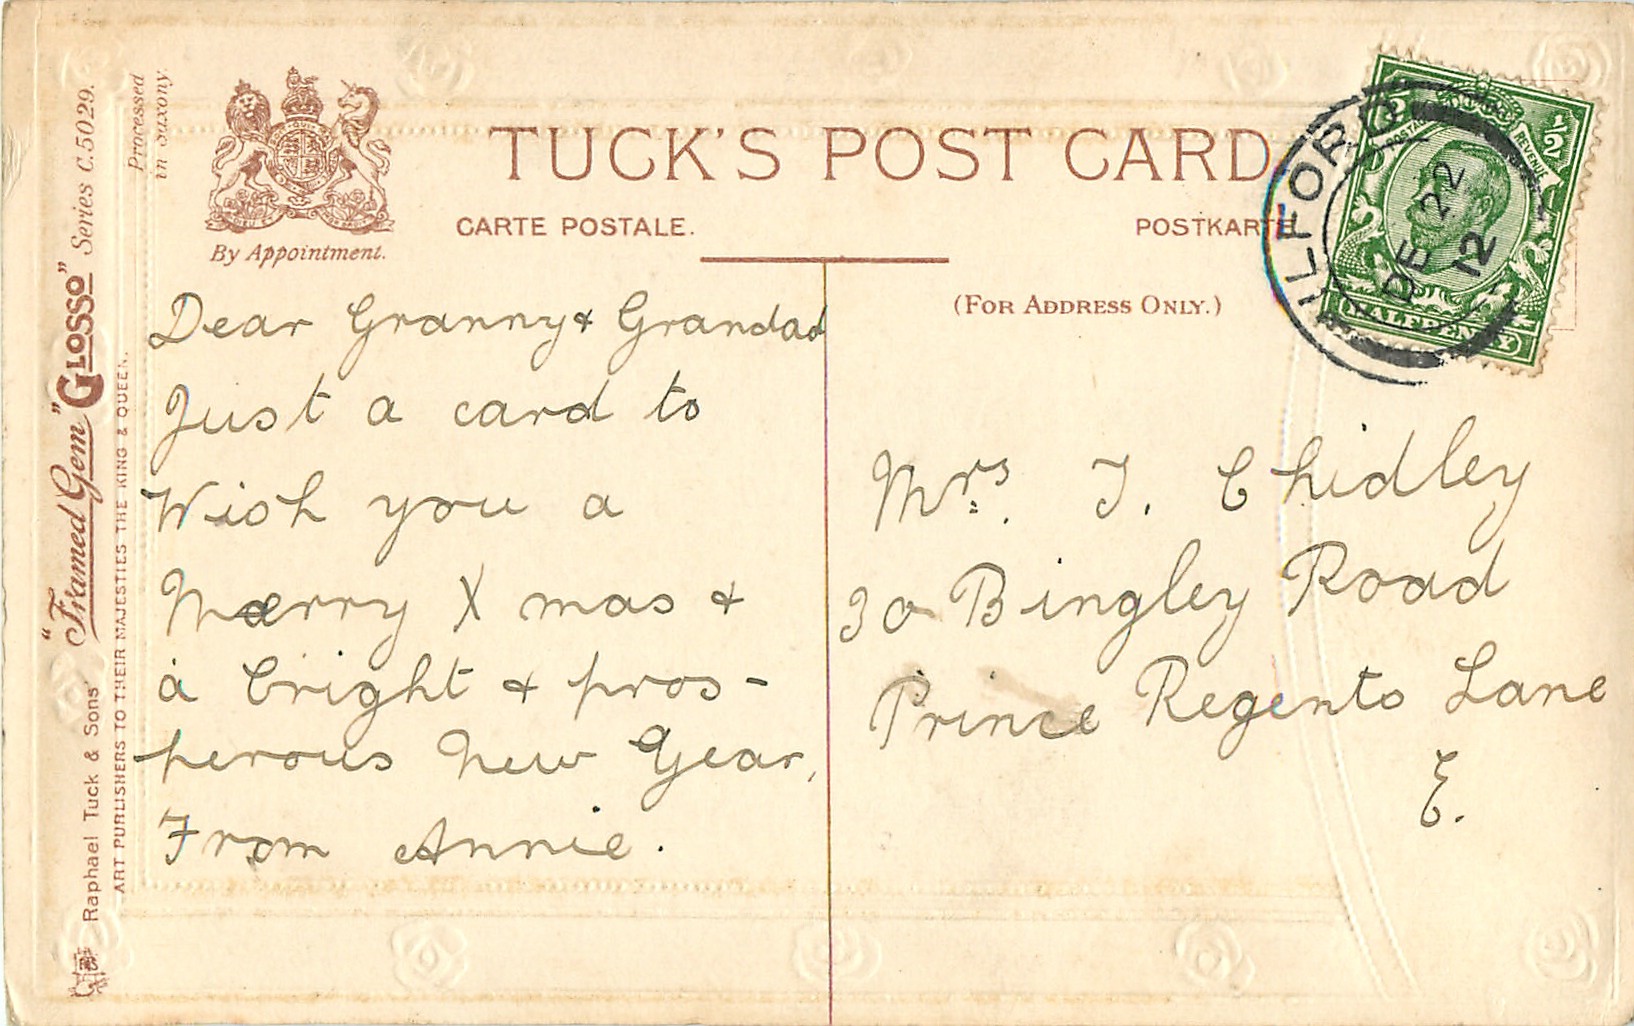 TUCK'S POST CARD
CARTE POSTALE.
POSTKARTE
By Appointment.
(FOR ADDRESS ONLY.)
Processed
in Saxony.
"Framed Gem" "GLOSSO" Series C.5029.
Raphael Tuck & Sons'
ART PUBLISHERS TO THEIR MAJESTIES THE KING & QUEEN.
ILFORD
DE 22
12
½
POSTAGE
REVENUE
HALFPENNY
Dear Granny & Grandad
Just a card to
Wish you a
Merry X mas &
a bright & pros-
perous New Year,
From Annie.
Mrs. T. Chidley
30 Bingley Road
Prince Regents Lane
E.